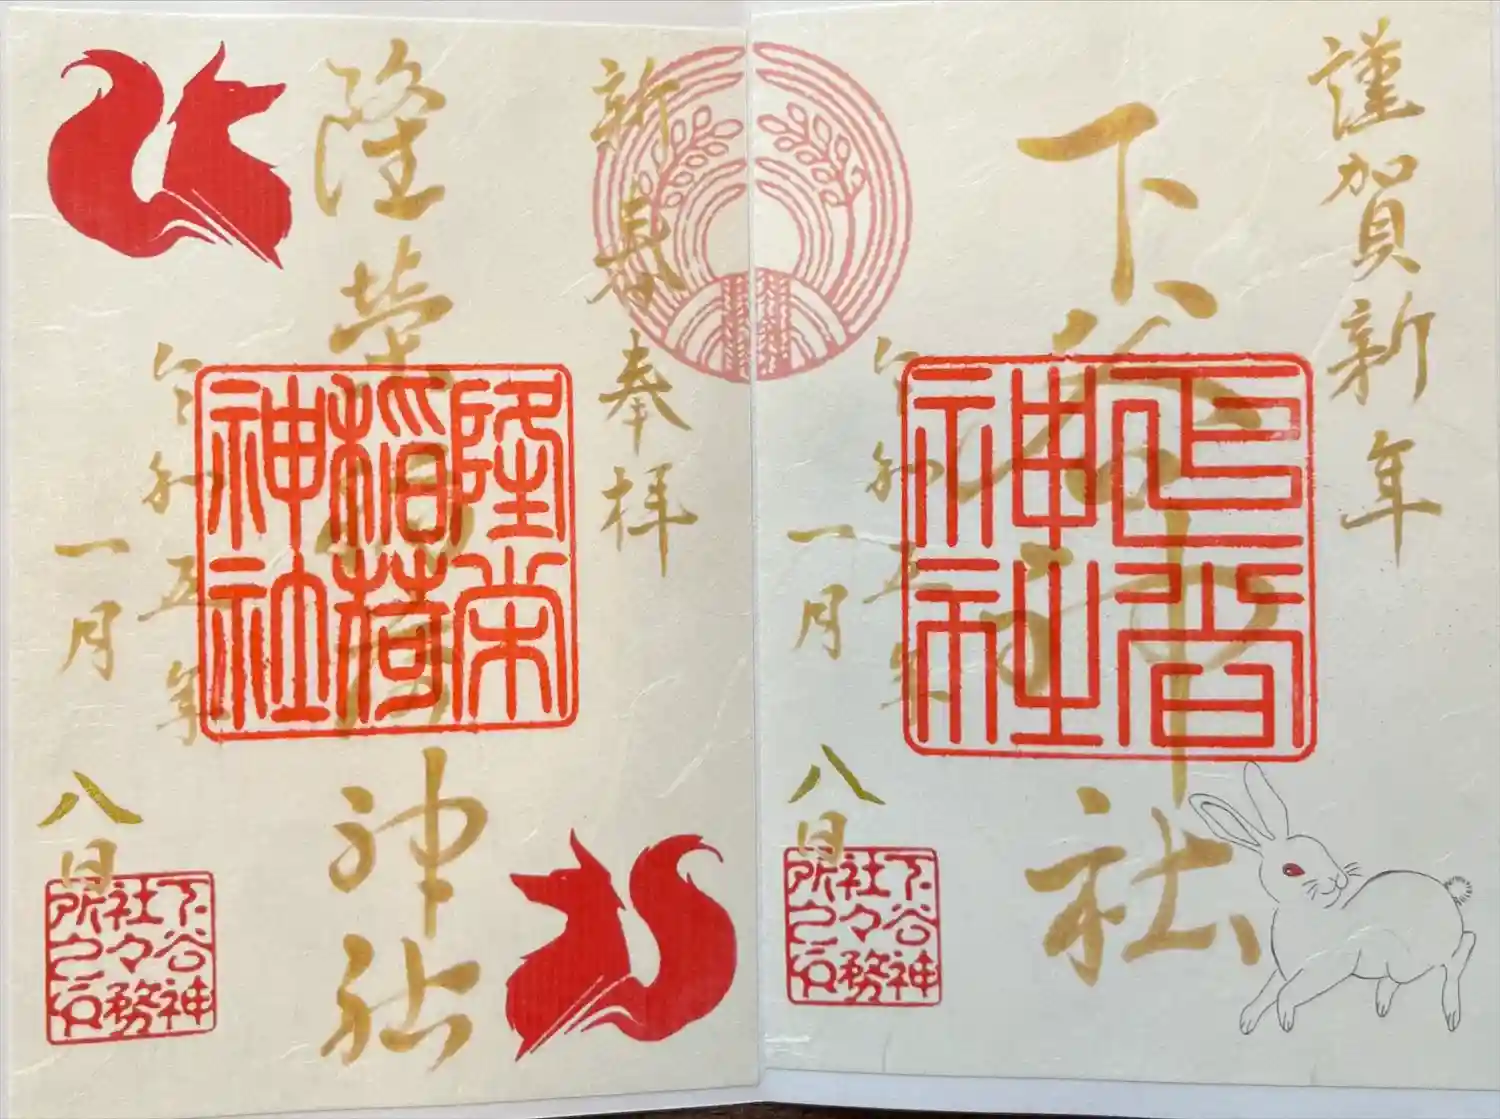 謹賀新年
下谷神社
令和五年
一月八日
下谷
神社
下谷神
社々務
所之印
新春奉拝
隆栄稲荷神社
令和五年
一月八日
隆栄
稲荷
神社
下谷神
社々務
所之印